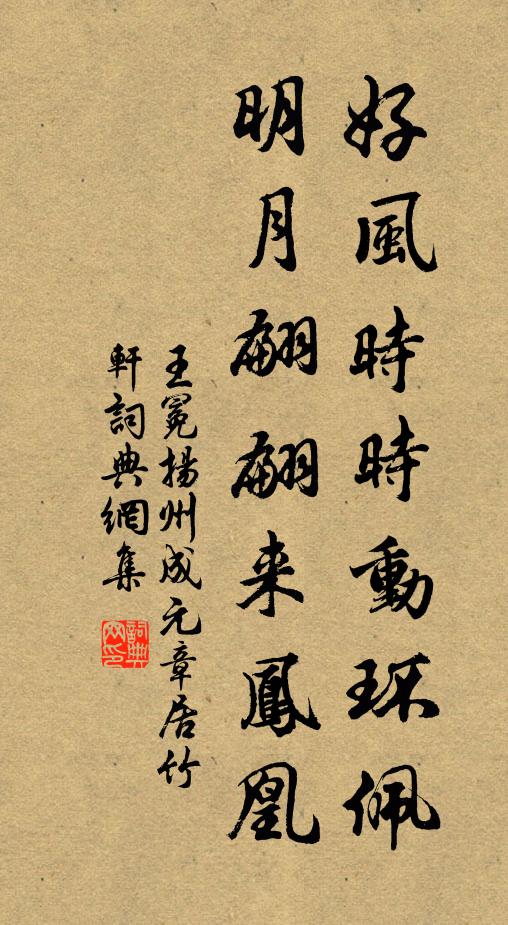 好風時時動环佩
明月翩翩来鳳凰
王冕揚州成元章居竹
軒詞典網集
詞典網印